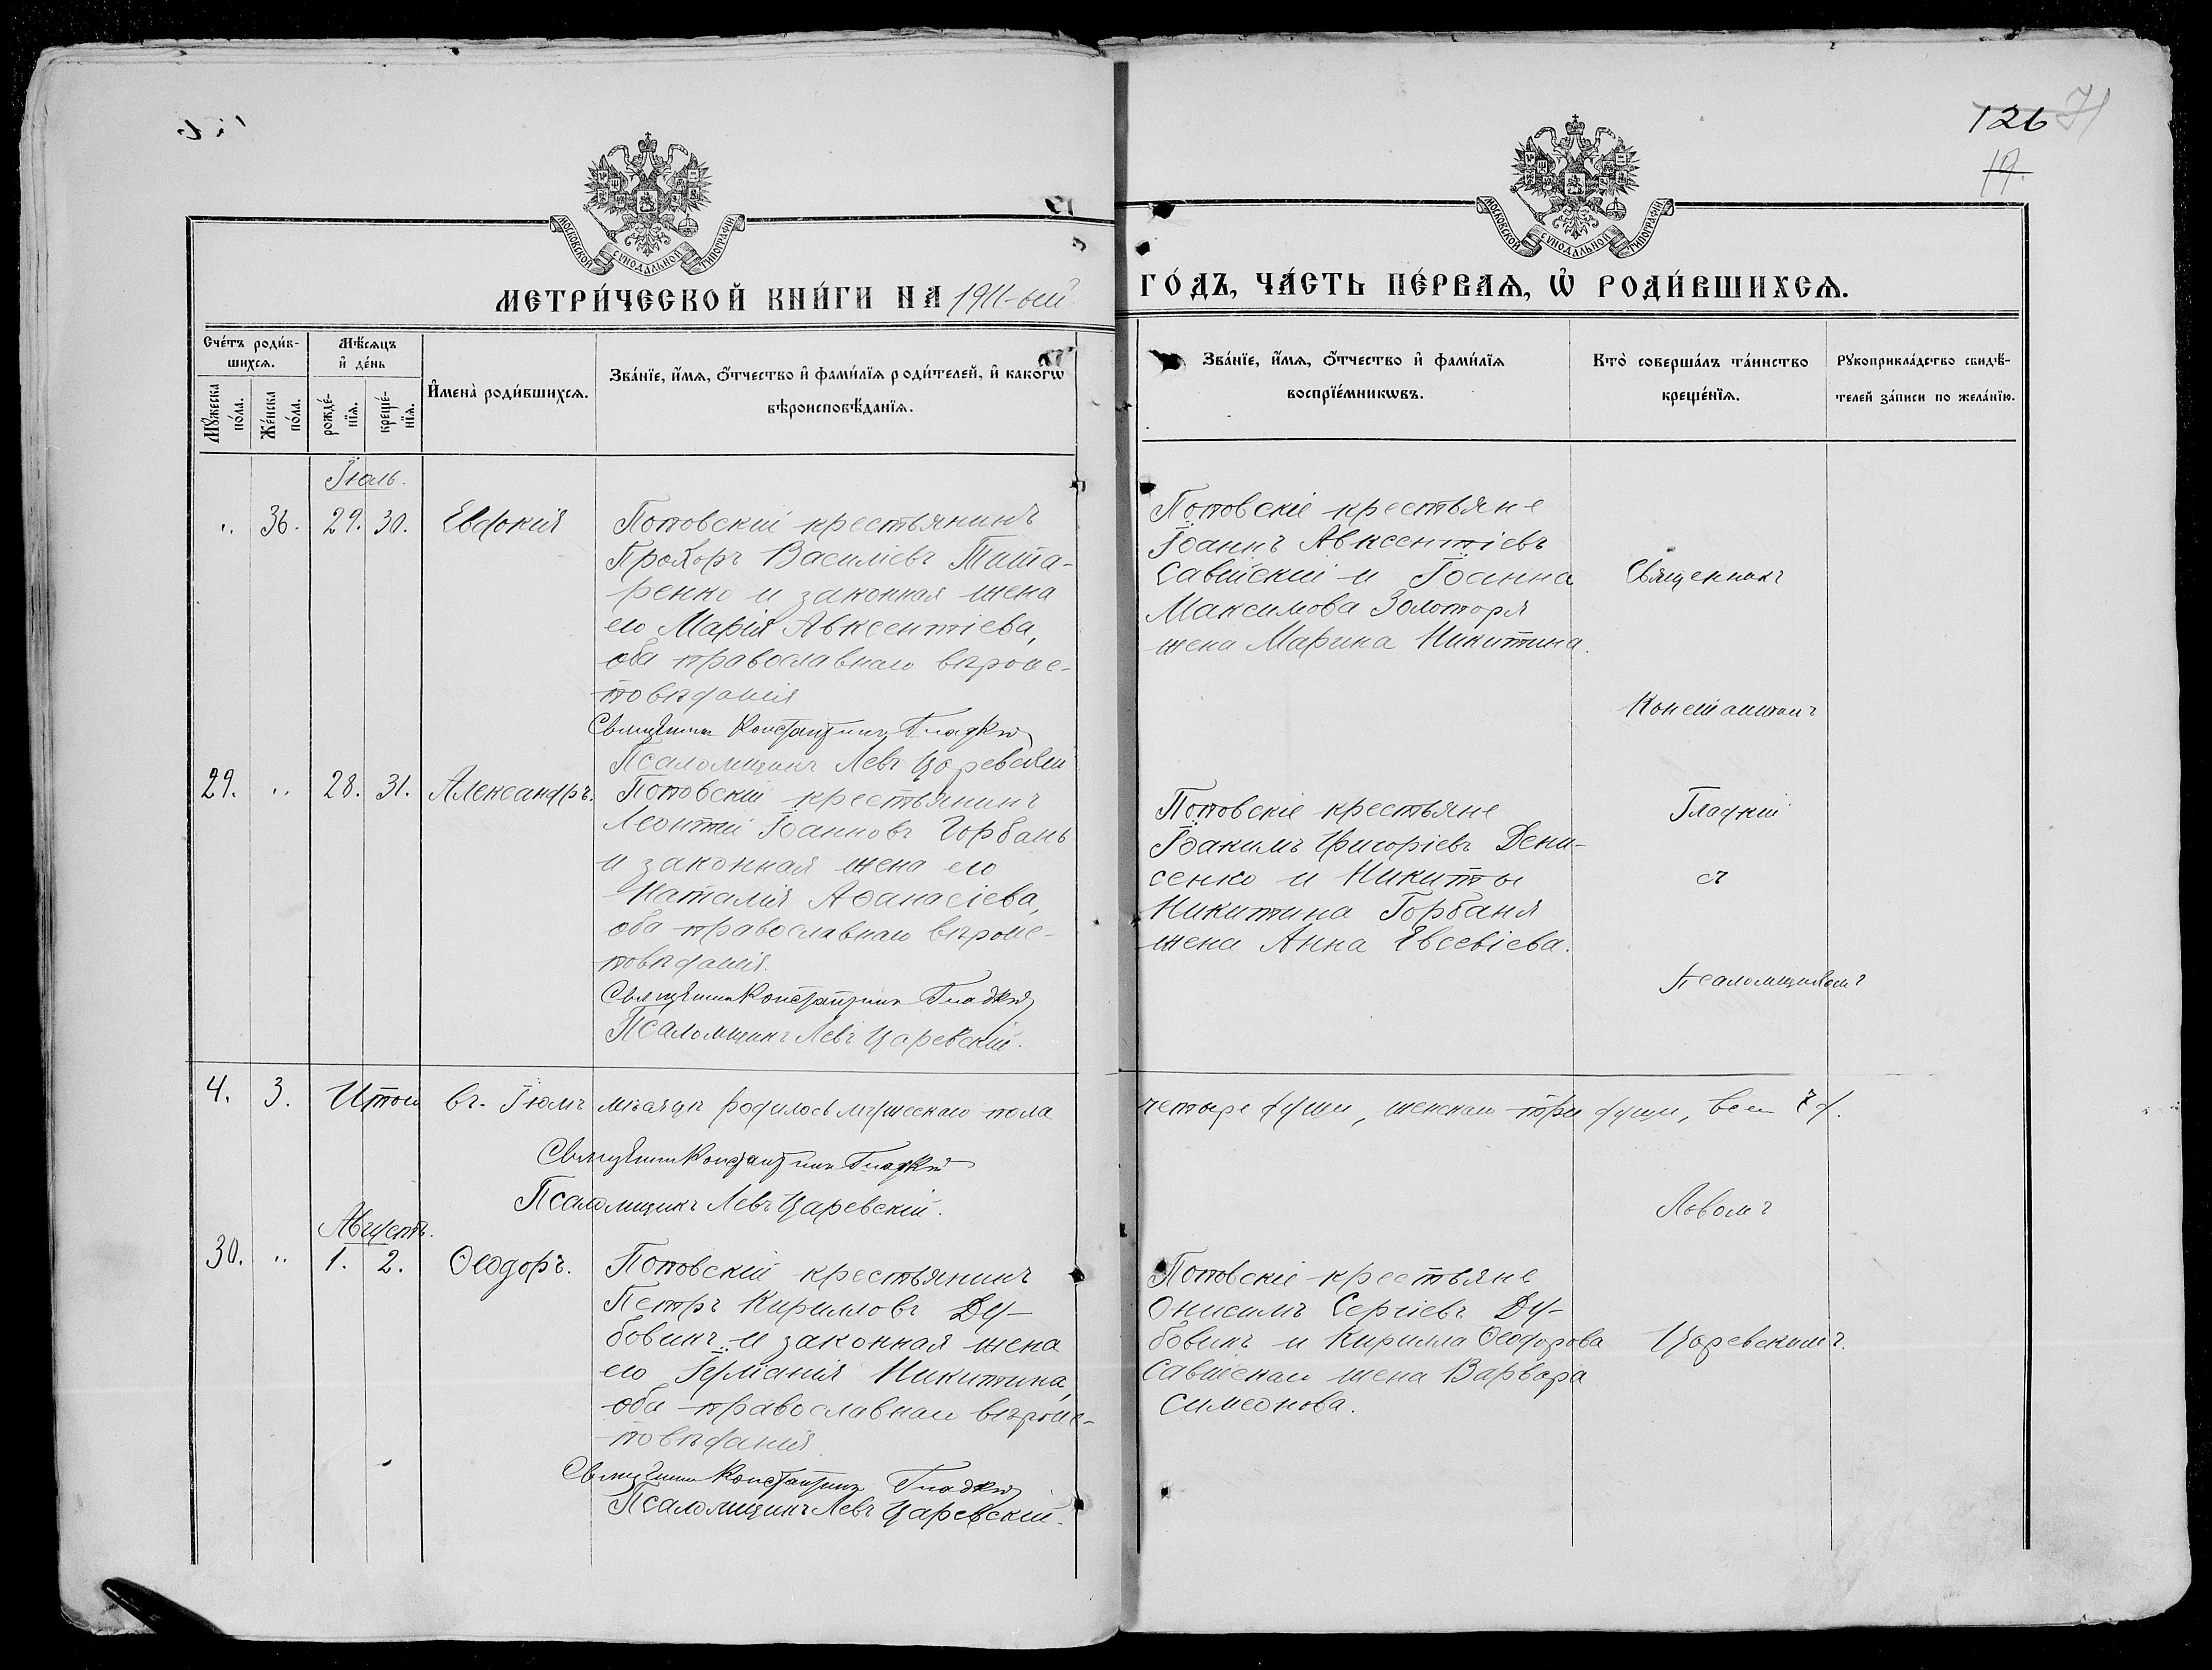 126 71
19.
МОСКОВСКОЙ СѴНОДАЛЬНОЙ ТИПОГРАФІИ
МОСКОВСКОЙ СѴНОДАЛЬНОЙ ТИПОГРАФІИ
МЕТРИ́ЧЕСКОЙ КНИ́ГИ НА 1911-ый
ГО́ДЪ, ЧА́СТЬ ПЕ́РВАѦ, Ѽ РОДИ́ВШИХСѦ.
Сче́тъ роди́в-
шихсѧ.
Мꙋ́жеска
по́ла.
Же́нска
по́ла.
Мѣ́сѧцъ
и҆ де́нь
рожде́-
нїѧ.
креще́-
нїѧ.
И҆мена̀ роди́вшихсѧ.
Зва́нїе, и҆́мѧ, ѻ҆́тчество и҆ фами́лїѧ роди́телей, и҆ како́гѡ
вѣроисповѣ́данїѧ.
Зва́нїе, и҆́мѧ, ѻ҆́тчество и҆ фами́лїѧ
воспрїе́мникѡвъ.
Кто̀ соверша́лъ та́инство
креще́нїѧ.
Рꙋкоприкла́дство свидѣ́-
телей за́писи по жела́нїю.
Іюль.
" 36. 29. 30. Евдокія
Поповскій крестьянинъ
Прохоръ Василіевъ Тита-
ренко и законная жена
его Марія Авксентіева,
оба православнаго вѣроис-
повѣданія
Священникъ Константинъ Гладкій
Псаломщикъ Левъ Царевскій
Поповскіе крестьяне
Іоаннъ Авксентіевъ
Савійскій и Іоанна
Максимова Золотаря
жена Марина Никитина.
Священникъ
Константинъ
Гладкій
съ
Псаломщикомъ
Львомъ
Царевскимъ.
29. " 28. 31. Александръ.
Поповскій крестьянинъ
Леонтій Іоанновъ Горбань
и законная жена его
Наталія Аѳанасіева,
оба православнаго вѣроис-
повѣданія.
Священникъ Константинъ Гладкій
Псаломщикъ Левъ Царевскій.
Поповскіе крестьяне
Іоакимъ Григоріевъ Дени-
сенко и Никиты
Никитина Горбаня
жена Анна Евсевіева.
4. 3. Итого въ Іюлѣ мѣсяцѣ родилось мужескаго пола четыре души, женскаго три души, всего 7 д.
Священникъ Константинъ Гладкій
Псаломщикъ Левъ Царевскій.
Августъ.
30. " 1. 2. Ѳеодоръ.
Поповскій крестьянинъ
Петръ Кирилловъ Ду-
бовикъ и законная жена
его Іуліанія Никитина,
оба православнаго вѣроис-
повѣданія
Священникъ Константинъ Гладкій
Псаломщикъ Левъ Царевскій.
Поповскіе крестьяне
Онисимъ Сергіевъ Ду-
бовикъ и Кирилла Ѳеодорова
Савійскаго жена Варвара
Симеонова.